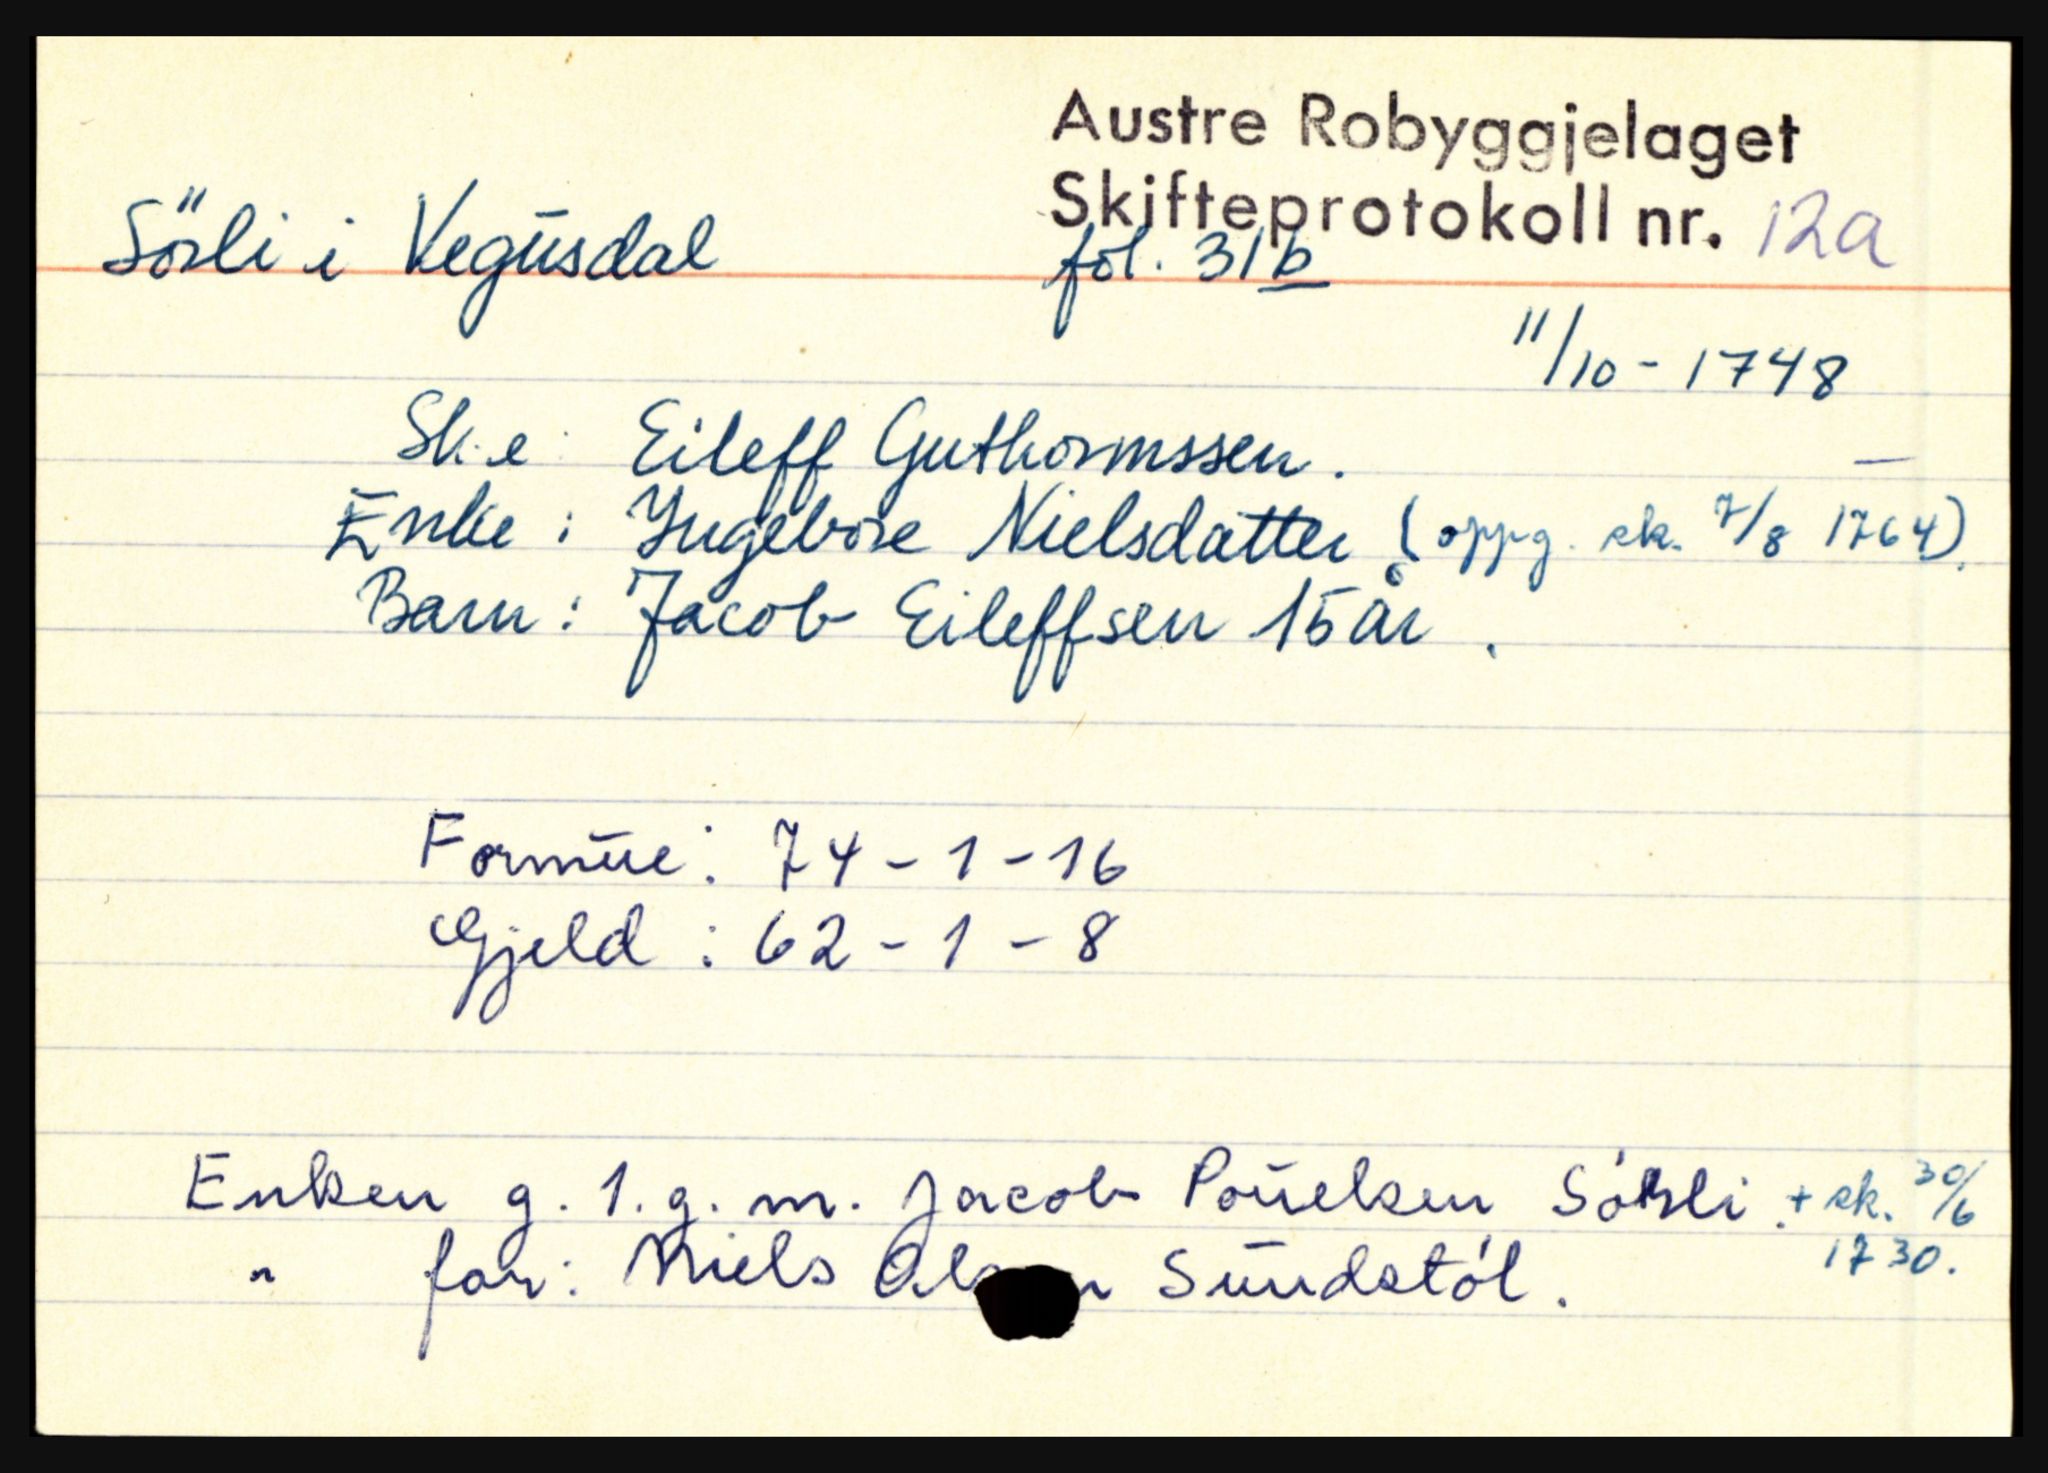 Austre Robyggjelaget
Skifteprotokoll nr. 12a
Sörli i Vegusdal fol. 31b
11/10 - 1748
Sk.e: Eileff Guthormssen.
Enke: Yngebore Nielsdatter (oppg. sk. 7/8 1764).
Barn: Jacob Eileffsen 15 år.
Formue: 74 - 1 - 16
Gjeld: 62 - 1 - 8
Enken g. 1. g. m. Jacob Pouelsen Sörli. + sk. 30/6
1730.
" far: Niels Sundstöl.